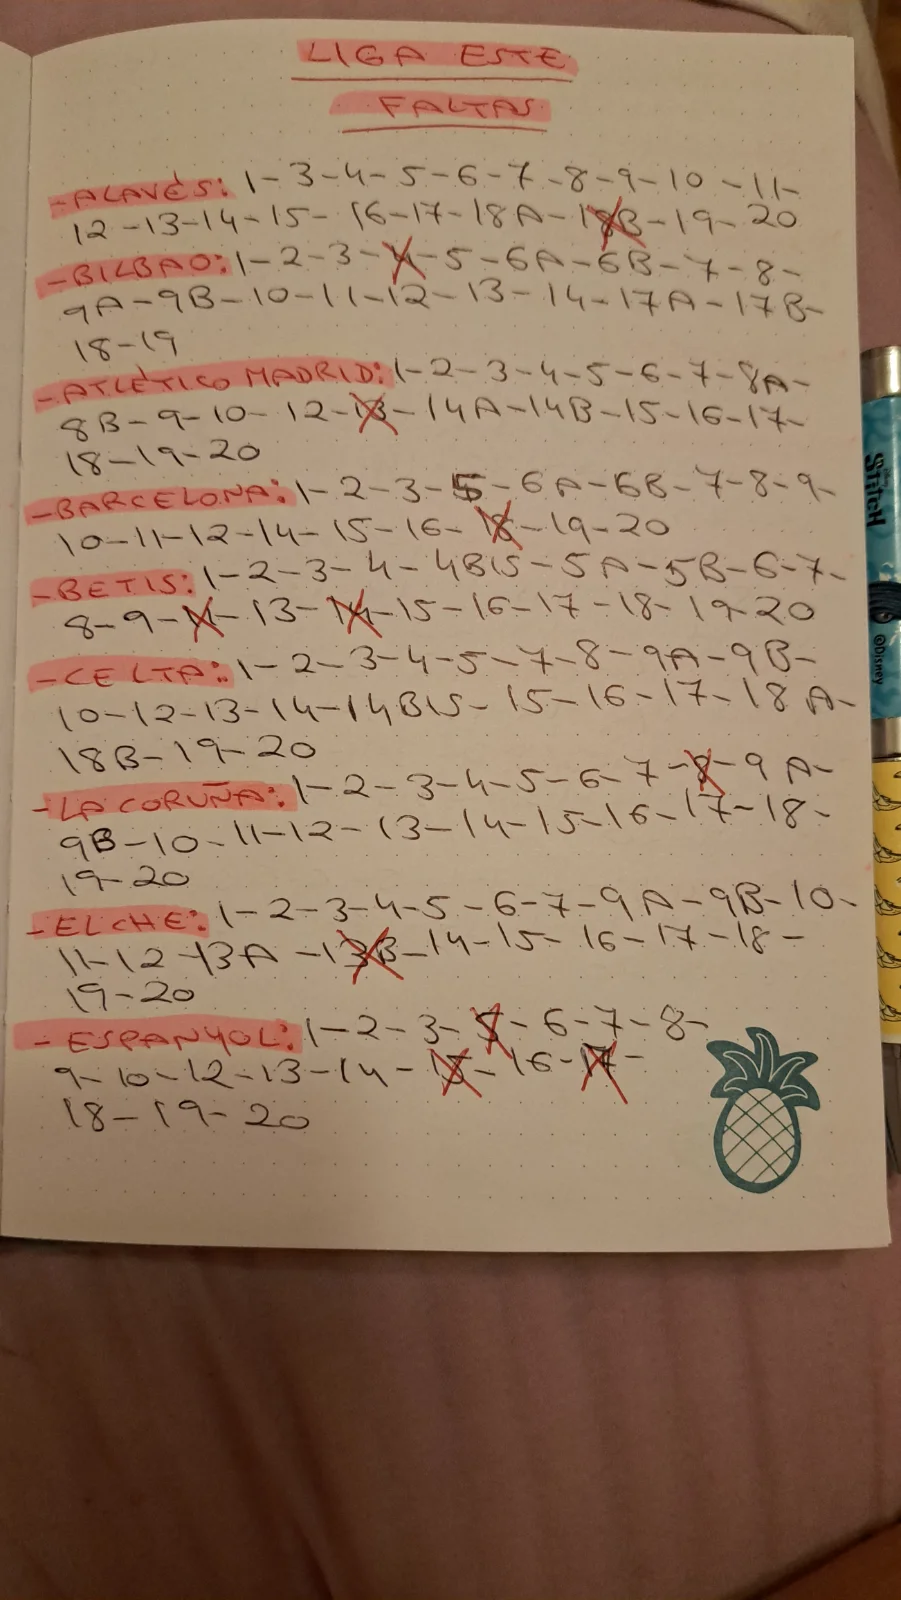 LIGA ESTE
FALTAS
-ALAVÉS: 1-3-4-5-6-7-8-9-10-11-
12-13-14-15-16-17-18A-18B-19-20
-BILBAO: 1-2-3-4-5-6A-6B-7-8-
9A-9B-10-11-12-13-14-17A-17B-
18-19
-ATLÉTICO MADRID: 1-2-3-4-5-6-7-8A-
8B-9-10-12-13-14A-14B-15-16-17-
18-19-20
-BARCELONA: 1-2-3-5-6A-6B-7-8-9-
10-11-12-14-15-16-18-19-20
-BETIS: 1-2-3-4-4BIS-5A-5B-6-7-
8-9-11-13-14-15-16-17-18-19-20
-CELTA: 1-2-3-4-5-7-8-9A-9B-
10-12-13-14-14BIS-15-16-17-18A-
18B-19-20
-LA CORUÑA: 1-2-3-4-5-6-7-8-9A-
9B-10-11-12-13-14-15-16-17-18-
19-20
-ELCHE: 1-2-3-4-5-6-7-9A-9B-10-
11-12-13A-13B-14-15-16-17-18-
19-20
-ESPANYOL: 1-2-3-5-6-7-8-
9-10-12-13-14-15-16-17-
18-19-20
Stitch
©Disney